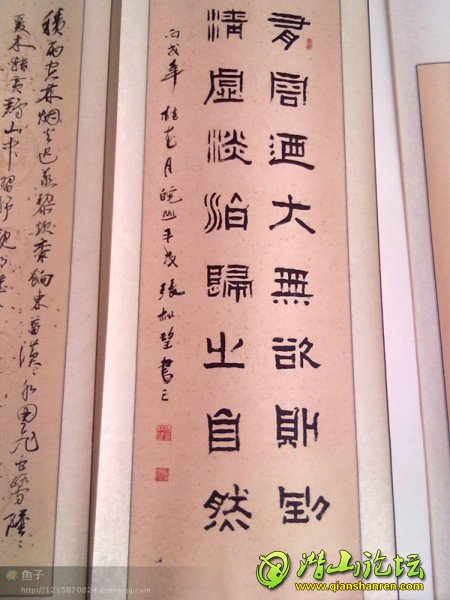 有容迺大無欲則剛
清虛淡泊歸之自然
丙戌年桂花月皖山張書之
積雨空林烟火遲蒸藜炊黍餉東菑漠〻水田飛白鷺陰〻
夏木囀黃鸝山中習靜觀
鱼子
http://1215870824.qzone.qq.com
潜山论坛
www.qianshanren.com